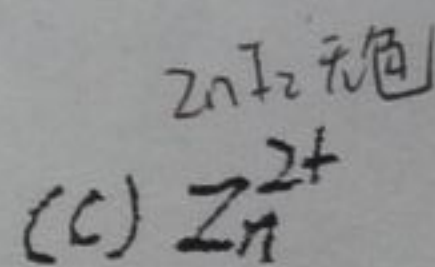 ZnI₂ 无色
(C) Zn²⁺